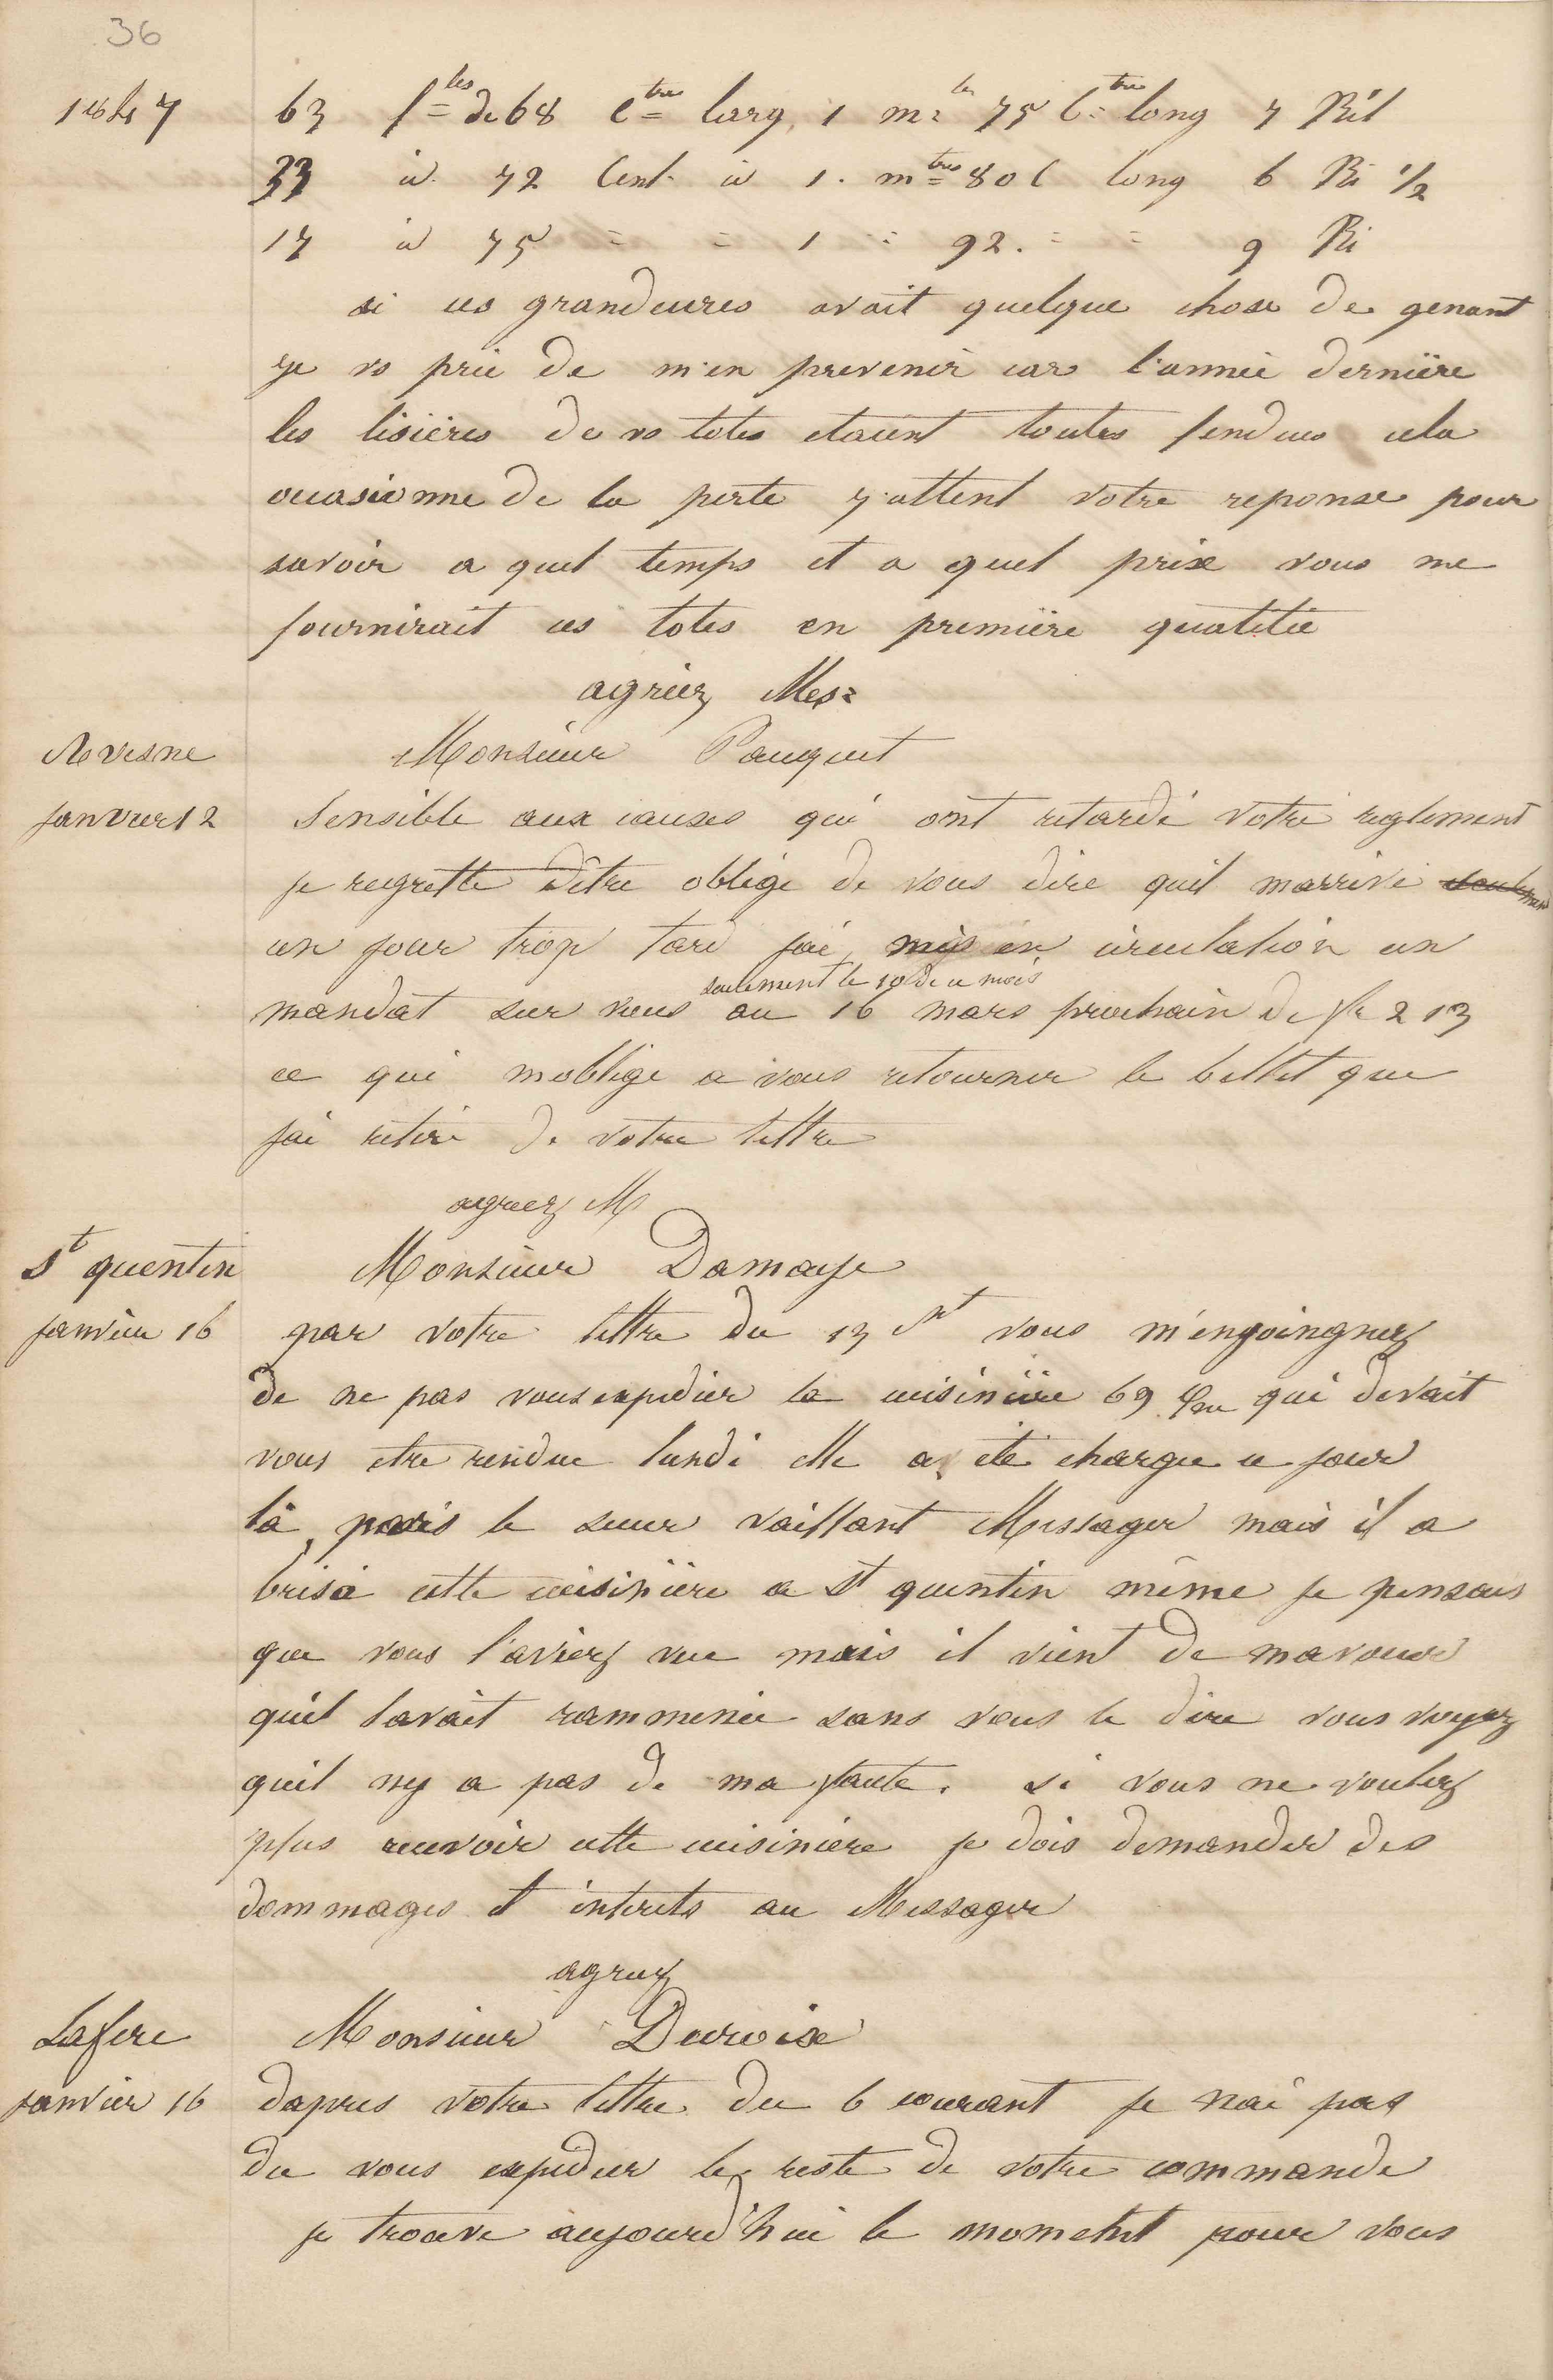 36
1847
63 f les de 68 c tres larg, 1 m tr 75 c tres long 7 Kil
33 id 72 Cent id 1. m tres 80 c long 6 Ki 1/2
17 id 75 = = 1 = 92. = = 9 Ki
si ces grandeures avait quelque chose de genant
je vs prie de m'en prevenir car l'année dernière
les lisières de vs toles etaient toutes fendues cela
occasionne de la perte j'attent votre reponse pour
savoir a quel temps et a quel prix vous me
fournirait ces toles en première quatitée
agréez Mes=
Avesne
janvier 12
Monsieur Pauquet
Sensible aux causes qui ont retardé votre reglement
je regrette d'être obligé de vous dire quil marrive seulement
un jour trop tard jai mis en circulation un
seulement le 10 de ce mois
mandat sur vous au 16 mars prochain de fr 213
ce qui moblige a vous retourner le billet que
jai retiré de votre lettre
agreez M
St quentin
janvier 16
Monsieur Damaye
par votre lettre du 13 ct vous m'enjoingnez
de ne pas vous expedier la cuisinière 69 qui devait
vous etre rendue lundi elle a été chargee ce jour
là par le sieur vaillant Messager mais il a
brisé cette cuisinière a St quentin même je pensais
que vous l'aviez vue mais il vient de mavouer
quil lavait rammenée sans vous le dire vous voyez
quil ny a pas de ma faute. si vous ne voulez
plus recevoir cette cuisiniere je dois demander des
dommages et interets au Messager
agreez
Lafere
janvier 16
Monsieur Duroix
dapres votre lettre du 6 courant je nai pas
du vous expedier le reste de votre commande
je trouve aujourd'hui le moment pour vous